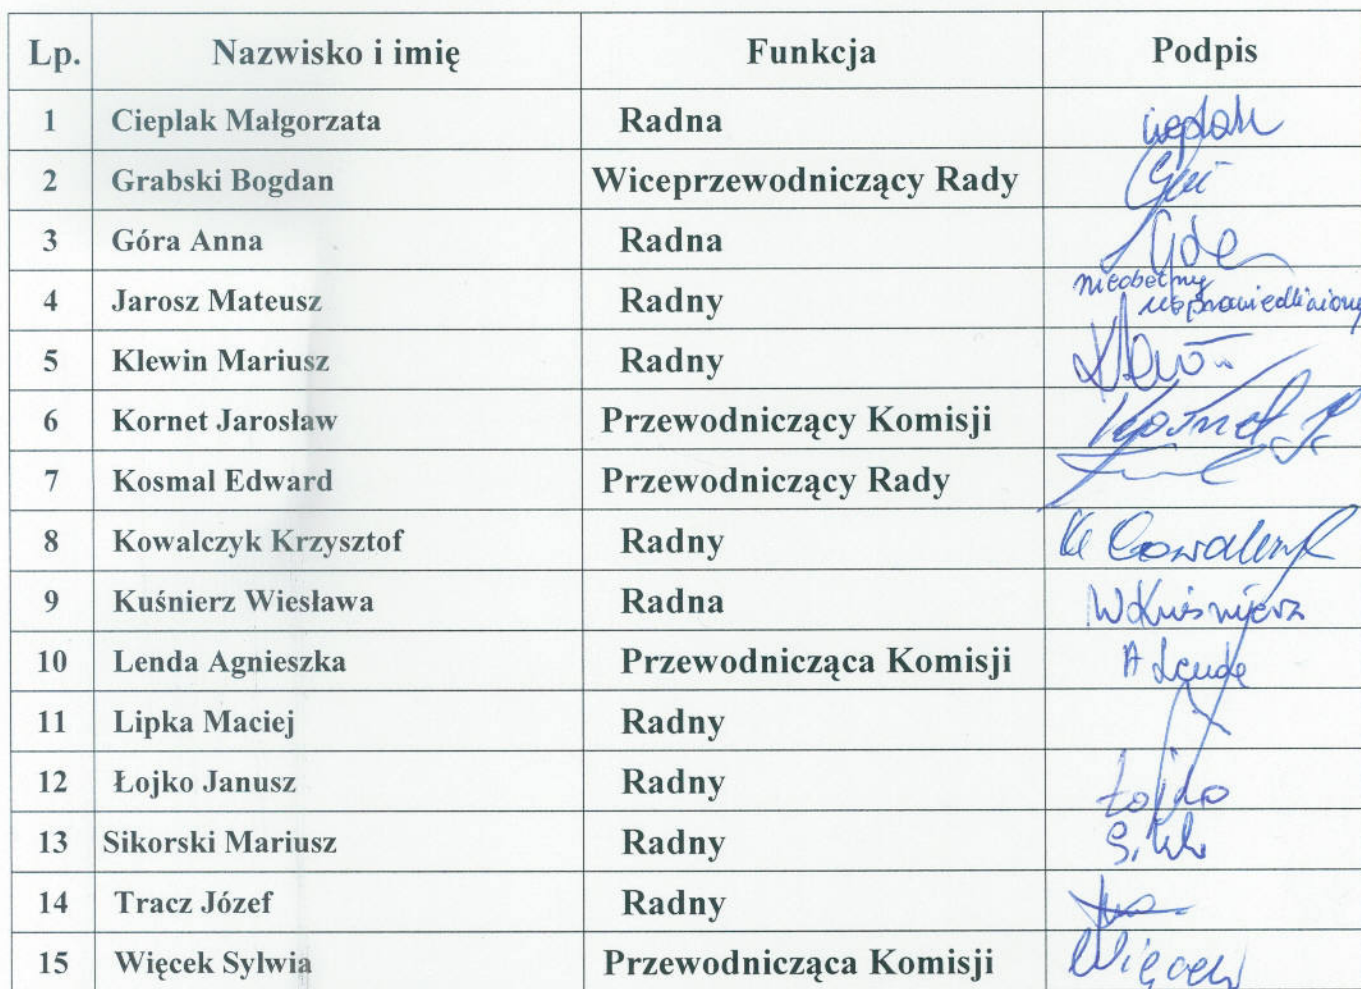 Lp. Nazwisko i imię Funkcja Podpis
1 Cieplak Małgorzata Radna cieplak
2 Grabski Bogdan Wiceprzewodniczący Rady
3 Góra Anna Radna
4 Jarosz Mateusz Radny nieobecny
usprawiedliwiony
5 Klewin Mariusz Radny
6 Kornet Jarosław Przewodniczący Komisji Kornet J.
7 Kosmal Edward Przewodniczący Rady
8 Kowalczyk Krzysztof Radny K Kowalczyk
9 Kuśnierz Wiesława Radna W Kuśnierz
10 Lenda Agnieszka Przewodnicząca Komisji A Lenda
11 Lipka Maciej Radny
12 Łojko Janusz Radny Łojko
13 Sikorski Mariusz Radny
14 Tracz Józef Radny
15 Więcek Sylwia Przewodnicząca Komisji Więcek